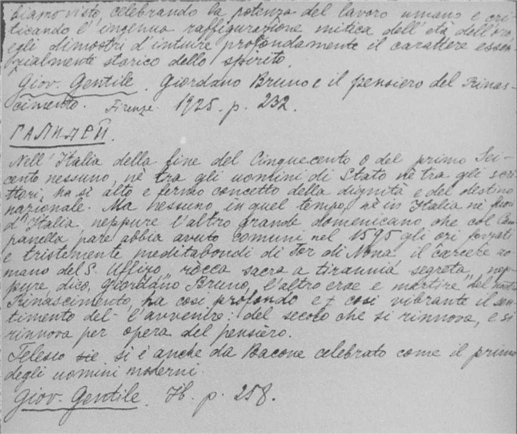 biamo visto celebrando la potenza del lavoro umano e cri-
ticando l'ingenua raffigurazione mitica dell'età dell'oro
egli dimostri d'intuire profondamente il carattere essen
zialmente storico dello spirito.
Giov. Gentile. Giordano Bruno e il pensiero del Rinas-
cimento. Firenze 1925. p. 232.
Nell'Italia della fine del Cinquecento o del primo Sei-
cento nessuno, nè tra gli uomini di Stato nè tra gli scrit-
tori, ha sì alto e fermo concetto della dignità e del destino
nazionale. Ma nessuno, in quel tempo, nè in Italia nè fuori
d'Italia, neppure l'altro grande domenicano che col Cam
panella pare abbia avuto comuni nel 1595 gli ozi forzati
e tristemente meditabondi di Tor di Nona, il carcere ro
mano del S. Uffizio, rocca sacra a tirannia segreta, nep-
pure, dico, Giordano Bruno, l'altro eroe e martire del
Rinascimento, ha così profondo e così vibrante il sen-
timento dell'avvenire: del secolo che si rinnova, e si
rinnova per opera del pensiero.
Telesio si è anche da Bacone celebrato come il primo
degli uomini moderni
Giov. Gentile. Ib. p. 258.